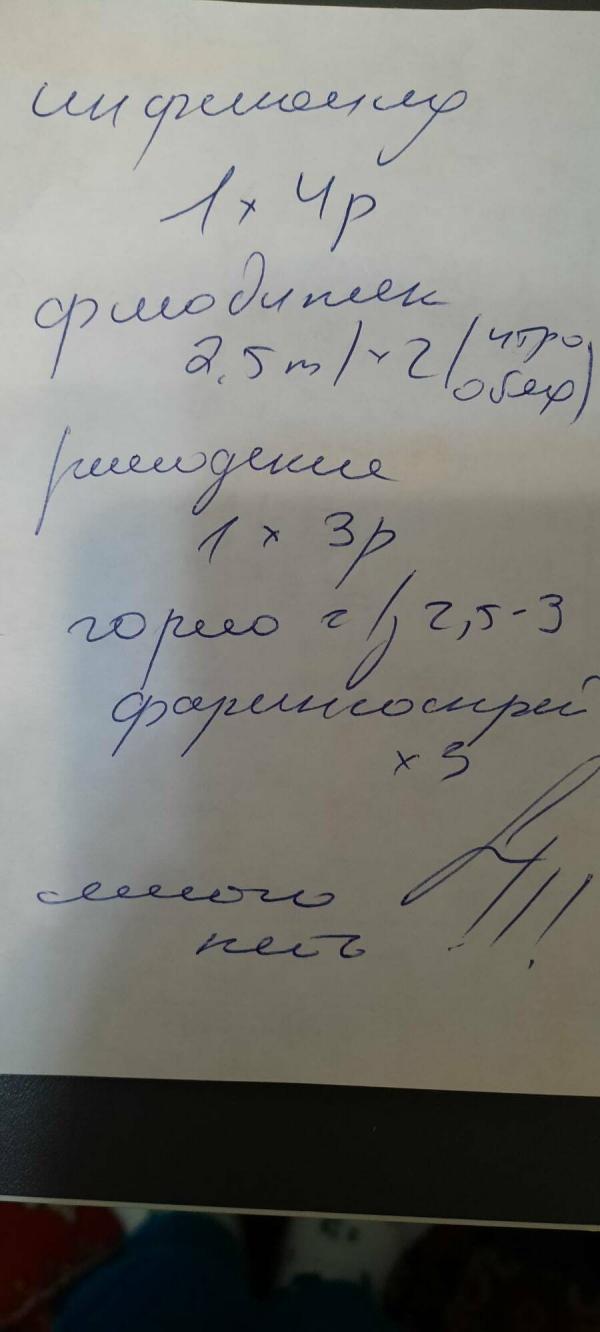 1 x 4р
флюдитек
2,5 т/ x 2 (утро, обед)
ринодекса
1 x 3р
горло ч/з 2,5-3
фарингоспрей
x 3
много
пить !!!